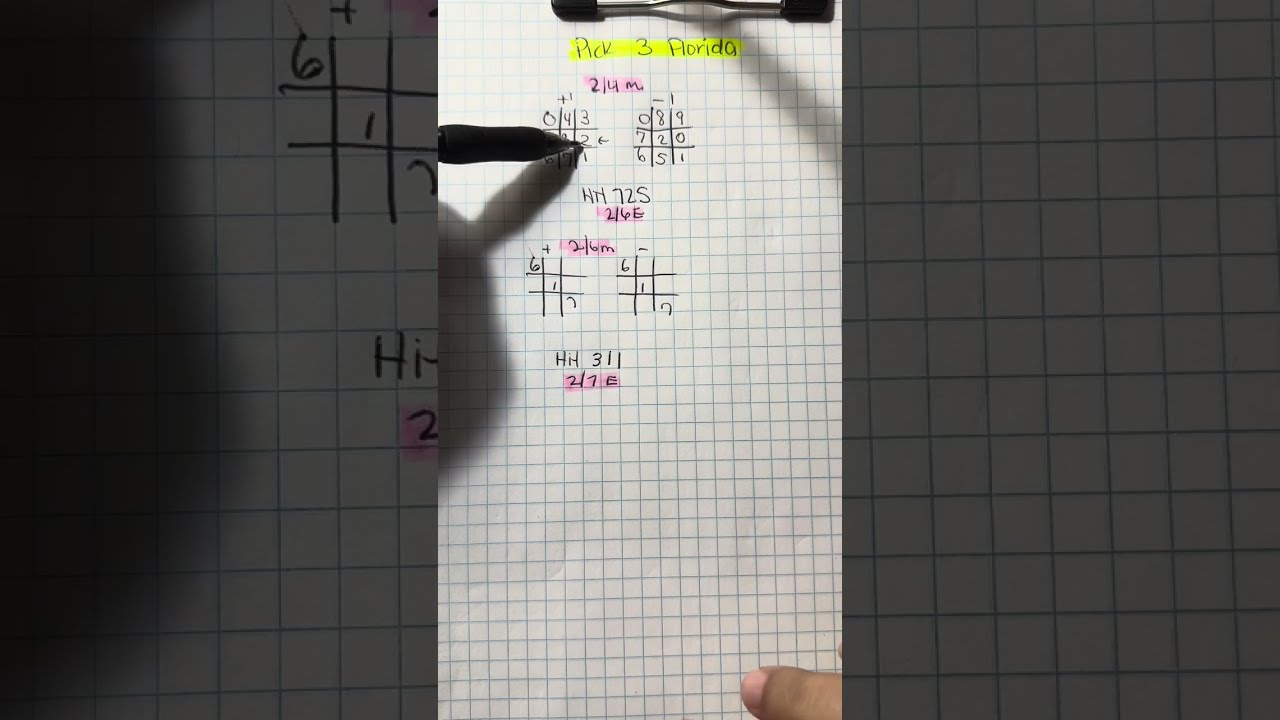 Pick 3 Florida
2/4 m
+1 -1
0 4 3 0 8 9
2 ← 7 2 0
6 7 1 6 5 1
HH 725
2/6 E
+ 2/6 m -
6 6
1 1
7 7
HH 311
2/7 E